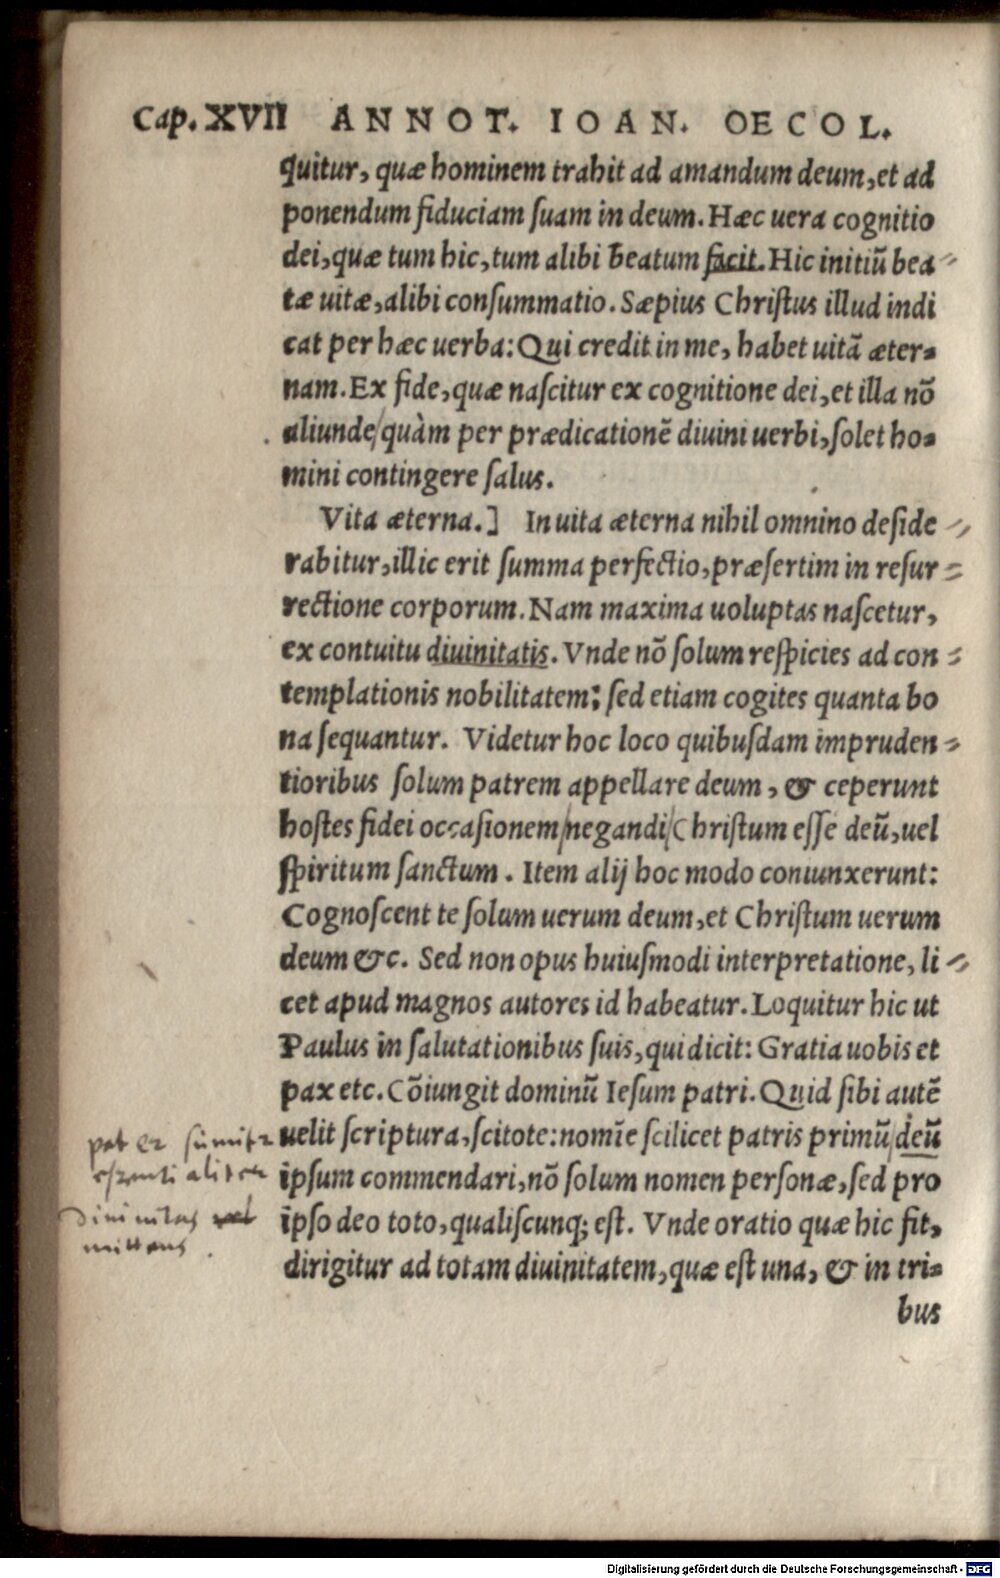 Cap. XVII ANNOT. IOAN. OECOL.
quitur, quæ hominem trahit ad amandum deum, et ad
ponendum fiduciam ſuam in deum. Hæc uera cognitio
dei, quæ tum hic, tum alibi beatum facit. Hic initiū bea
tæ uitæ, alibi conſummatio. Sæpius Chriſtus illud indi
cat per hæc uerba: Qui credit in me, habet uitā æter=
nam. Ex fide, quæ naſcitur ex cognitione dei, et illa nō
aliunde/quàm per prædicationē diuini uerbi, ſolet ho=
mini contingere ſalus.
Vita æterna.] In uita æterna nihil omnino deſide
rabitur, illic erit ſumma perfectio, præſertim in reſur
rectione corporum. Nam maxima uoluptas naſcetur,
ex contuitu diuinitatis. Vnde nō ſolum reſpicies ad con
templationis nobilitatem: ſed etiam cogites quanta bo
na ſequantur. Videtur hoc loco quibuſdam impruden
tioribus ſolum patrem appellare deum, & ceperunt
hoſtes fidei occaſionem/negandi/Chriſtum eſſe deū, uel
ſpiritum ſanctum. Item alij hoc modo coniunxerunt:
Cognoſcent te ſolum uerum deum, et Chriſtum uerum
deum &c. Sed non opus huiuſmodi interpretatione, li
cet apud magnos autores id habeatur. Loquitur hic ut
Paulus in ſalutationibus ſuis, qui dicit: Gratia uobis et
pax etc. Cōiungit dominū Ieſum patri. Quid ſibi autē
uelit ſcriptura, ſcitote: nomīe ſcilicet patris primū/deū
ipſum commendari, nō ſolum nomen perſonæ, ſed pro
ipſo deo toto, qualiſcunq; eſt. Vnde oratio quæ hic fit,
dirigitur ad totam diuinitatem, quæ eſt una, & in tri=
bus
pater
diuinitas
mittens
Digitalisierung gefördert durch die Deutsche Forschungsgemeinschaft - DFG